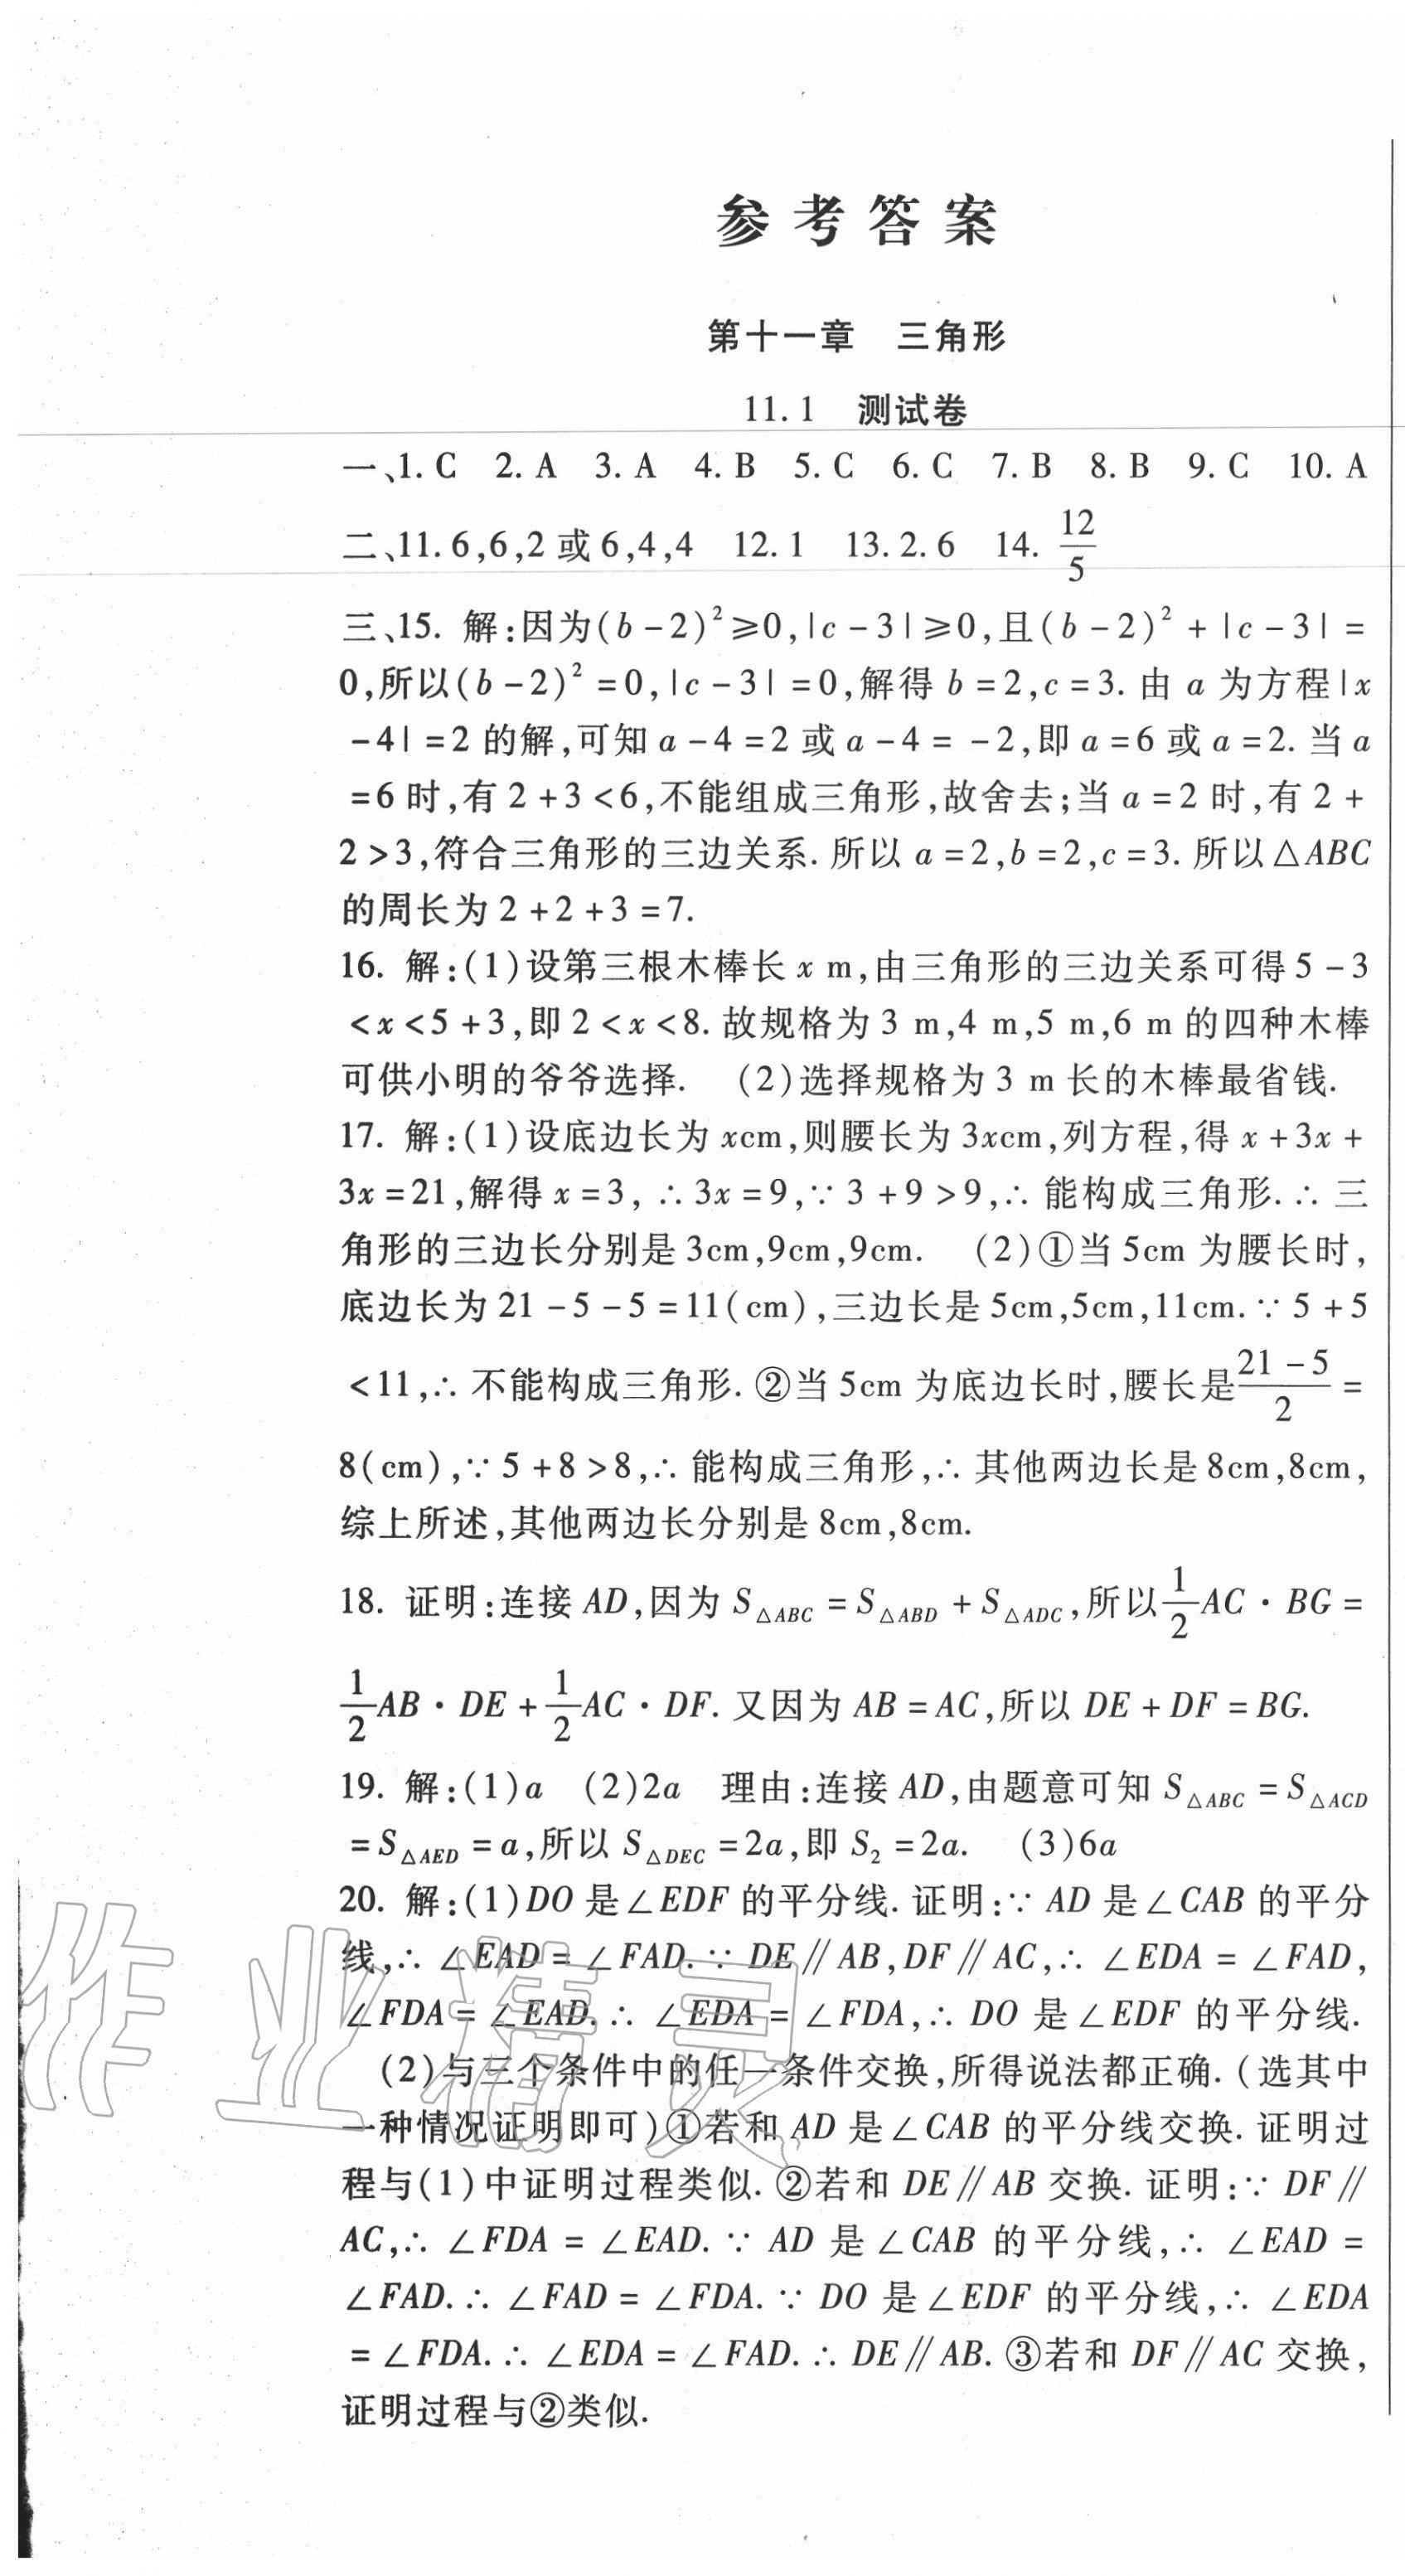 参考答案
第十一章　三角形
11.1　测试卷
一、1. C　2. A　3. A　4. B　5. C　6. C　7. B　8. B　9. C　10. A
二、11. 6,6,2 或 6,4,4　12. 1　13. 2.6　14. 12/5
三、15. 解:因为(b-2)²≥0,|c-3|≥0,且(b-2)²+|c-3|=
0,所以(b-2)²=0,|c-3|=0,解得 b=2,c=3. 由 a 为方程|x
-4|=2 的解,可知 a-4=2 或 a-4=-2,即 a=6 或 a=2. 当 a
=6 时,有 2+3<6,不能组成三角形,故舍去;当 a=2 时,有 2+
2>3,符合三角形的三边关系. 所以 a=2,b=2,c=3. 所以△ABC
的周长为 2+2+3=7.
16. 解:(1)设第三根木棒长 x m,由三角形的三边关系可得 5-3
<x<5+3,即 2<x<8. 故规格为 3 m,4 m,5 m,6 m 的四种木棒
可供小明的爷爷选择.　(2)选择规格为 3 m 长的木棒最省钱.
17. 解:(1)设底边长为 xcm,则腰长为 3xcm,列方程,得 x+3x+
3x=21,解得 x=3, ∴3x=9,∵3+9>9,∴能构成三角形. ∴三
角形的三边长分别是 3cm,9cm,9cm.　(2)①当 5cm 为腰长时,
底边长为 21-5-5=11(cm),三边长是 5cm,5cm,11cm. ∵5+5
<11,∴不能构成三角形. ②当 5cm 为底边长时,腰长是(21-5)/2=
8(cm),∵5+8>8,∴能构成三角形,∴其他两边长是 8cm,8cm,
综上所述,其他两边长分别是 8cm,8cm.
18. 证明:连接 AD,因为 S△ABC=S△ABD+S△ADC,所以1/2AC·BG=
1/2AB·DE+1/2AC·DF. 又因为 AB=AC,所以 DE+DF=BG.
19. 解:(1)a　(2)2a　理由:连接 AD,由题意可知 S△ABC=S△ACD
=S△AED=a,所以 S△DEC=2a,即 S₂=2a.　(3)6a
20. 解:(1)DO 是∠EDF 的平分线. 证明:∵AD 是∠CAB 的平分
线,∴∠EAD=∠FAD. ∵DE∥AB,DF∥AC,∴∠EDA=∠FAD,
∠FDA=∠EAD. ∴∠EDA=∠FDA,∴DO 是∠EDF 的平分线.
(2)与三个条件中的任一条件交换,所得说法都正确. (选其中
一种情况证明即可)①若和 AD 是∠CAB 的平分线交换. 证明过
程与(1)中证明过程类似. ②若和 DE∥AB 交换. 证明:∵DF∥
AC,∴∠FDA=∠EAD. ∵AD 是∠CAB 的平分线,∴∠EAD=
∠FAD. ∴∠FAD=∠FDA. ∵DO 是∠EDF 的平分线,∴∠EDA
=∠FDA. ∴∠EDA=∠FAD. ∴DE∥AB. ③若和 DF∥AC 交换,
证明过程与②类似.
作业精灵